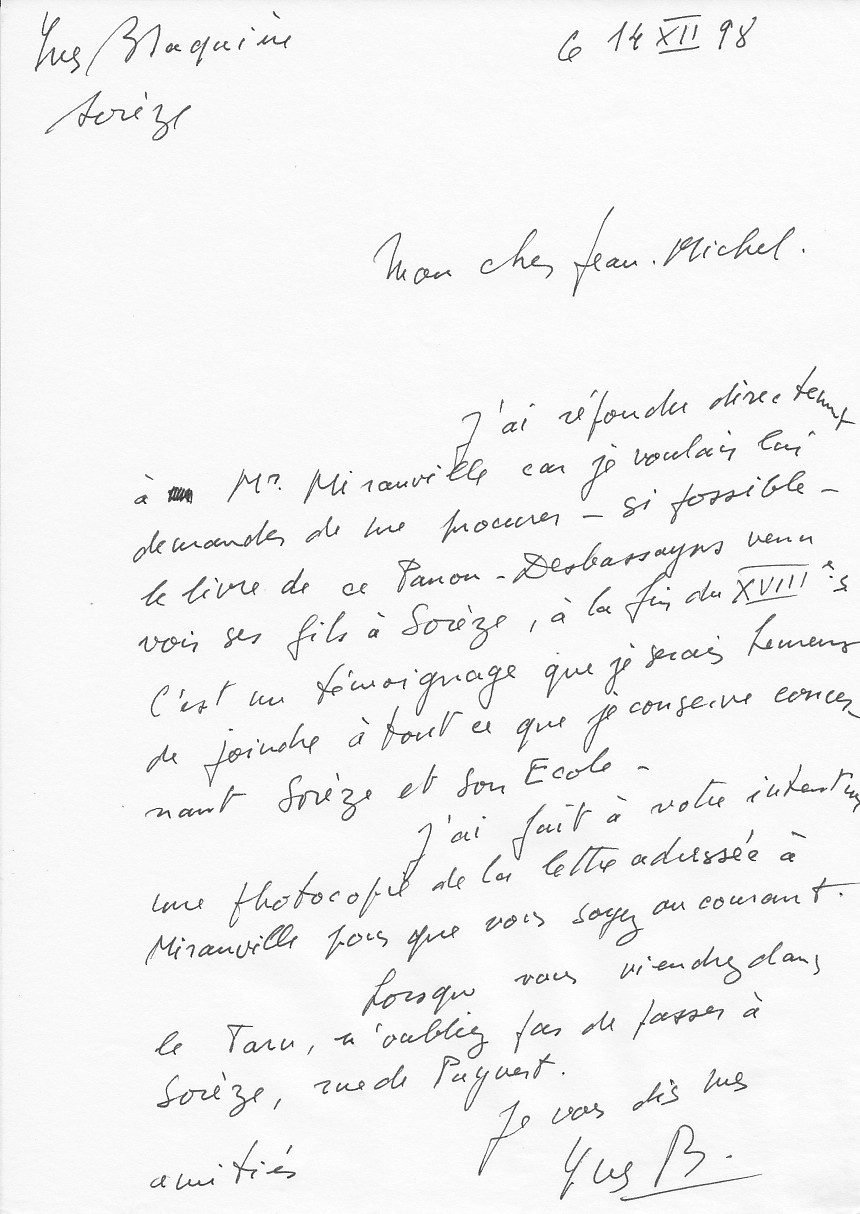 Yves Blaquière
le 14 XII 98
Sorèze
Mon cher Jean-Michel.
J'ai répondu directement
à Mr. Miranville car je voulais lui
demander de me procurer - si possible -
le livre de ce Panon-Desbassayns venu
voir ses fils à Sorèze, à la fin du XVIII è s
C'est un témoignage que je serais heureux
de joindre à tout ce que je conserve concer-
nant Sorèze et son Ecole -
J'ai fait à votre intention
une photocopie de la lettre adressée à
Miranville pour que vous soyez au courant.
Lorsque vous viendrez dans
le Tarn, n'oubliez pas de passer à
Sorèze, rue de Puyvert.
Je vous dis mes
amitiés
Yves B.